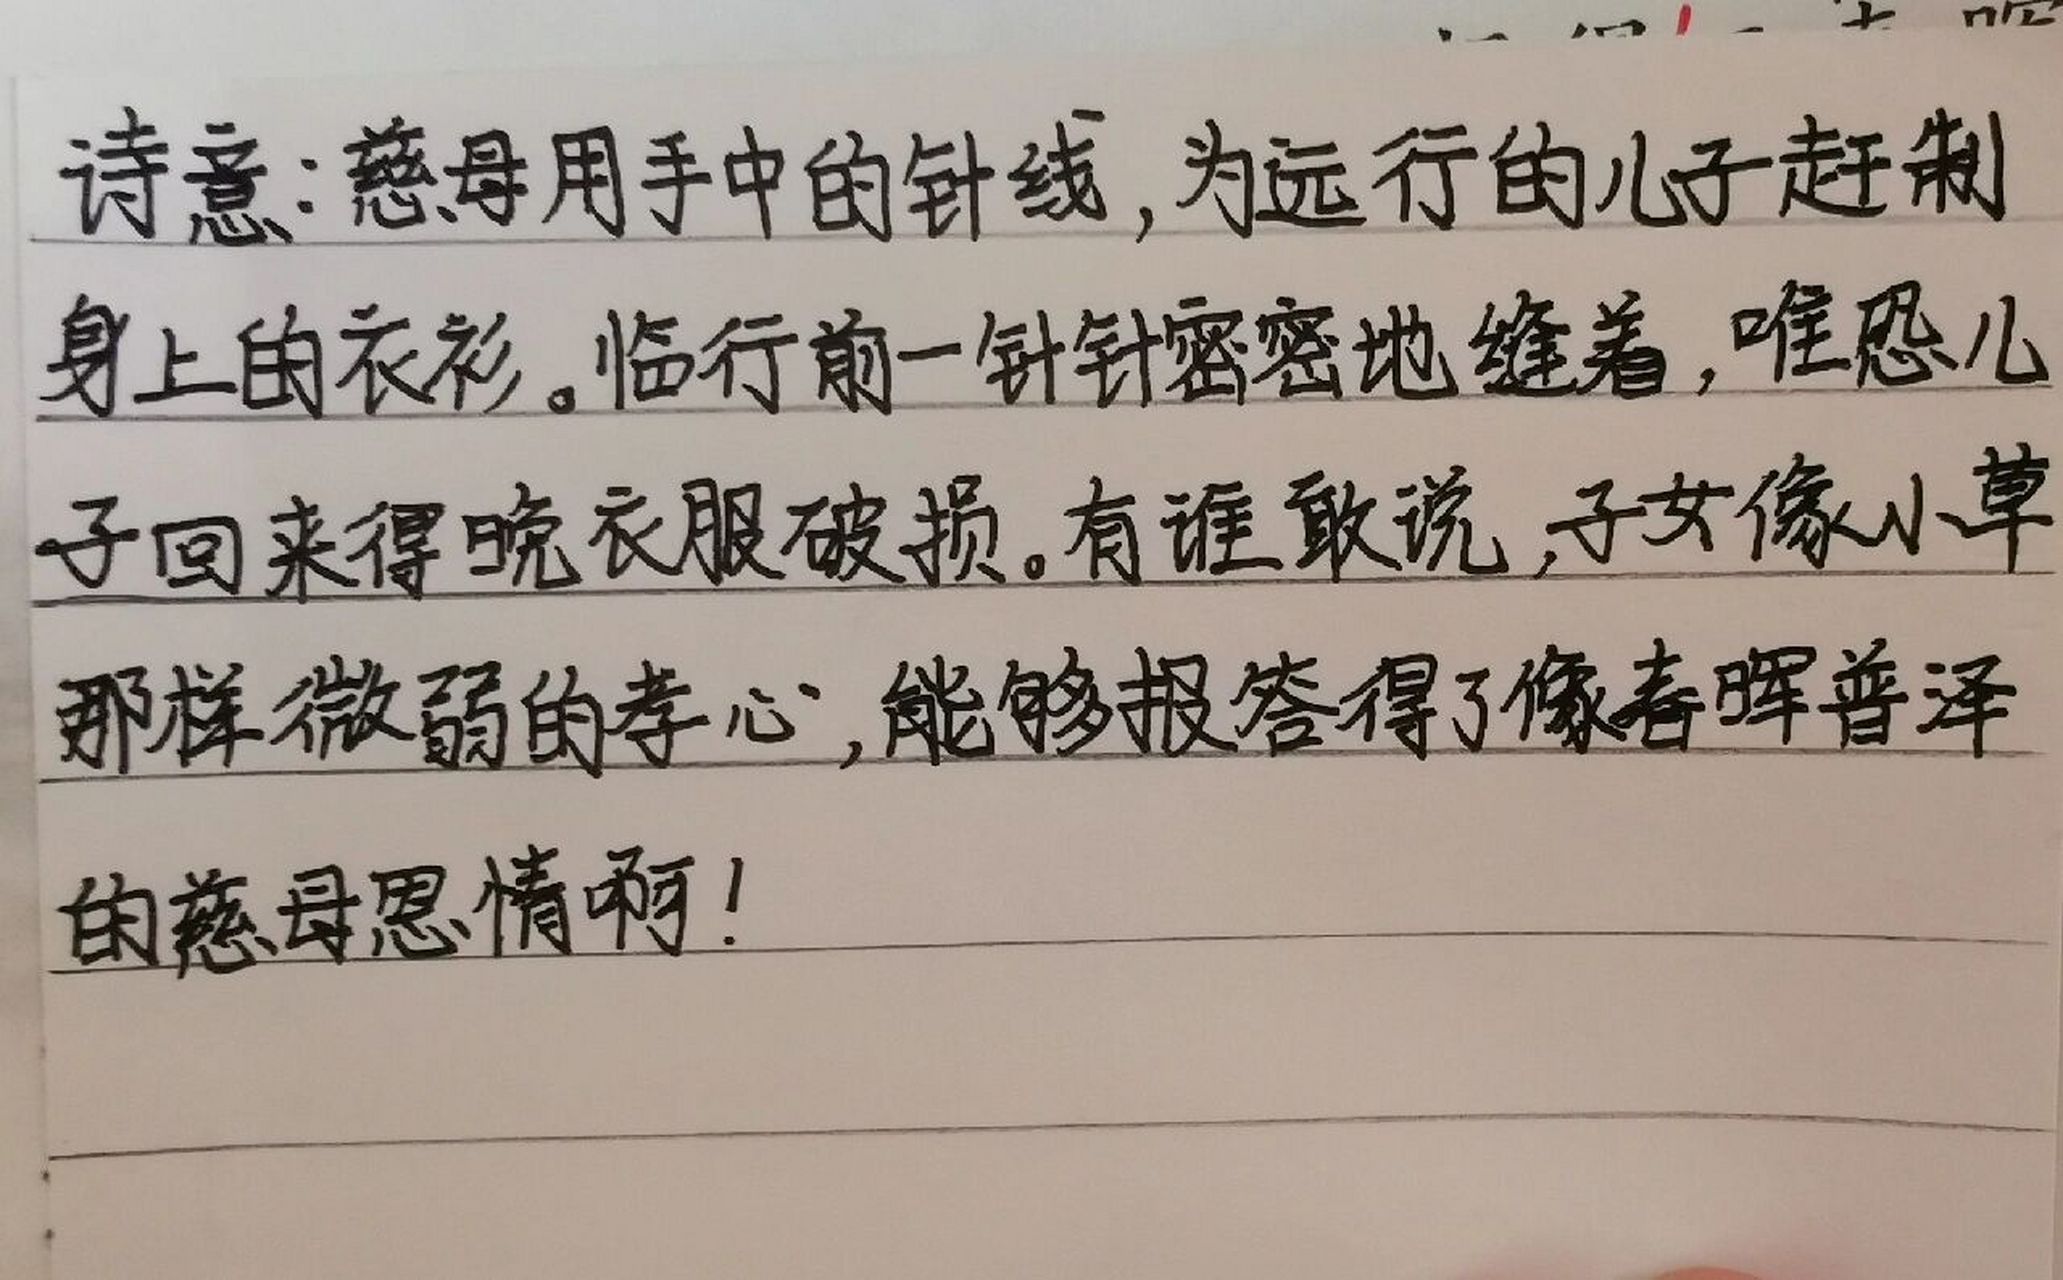 诗意:慈母用手中的针线,为远行的儿子赶制
身上的衣衫。临行前一针针密密地缝着,唯恐儿
子回来得晚衣服破损。有谁敢说,子女像小草
那样微弱的孝心,能够报答得了像春晖普泽
的慈母恩情啊!